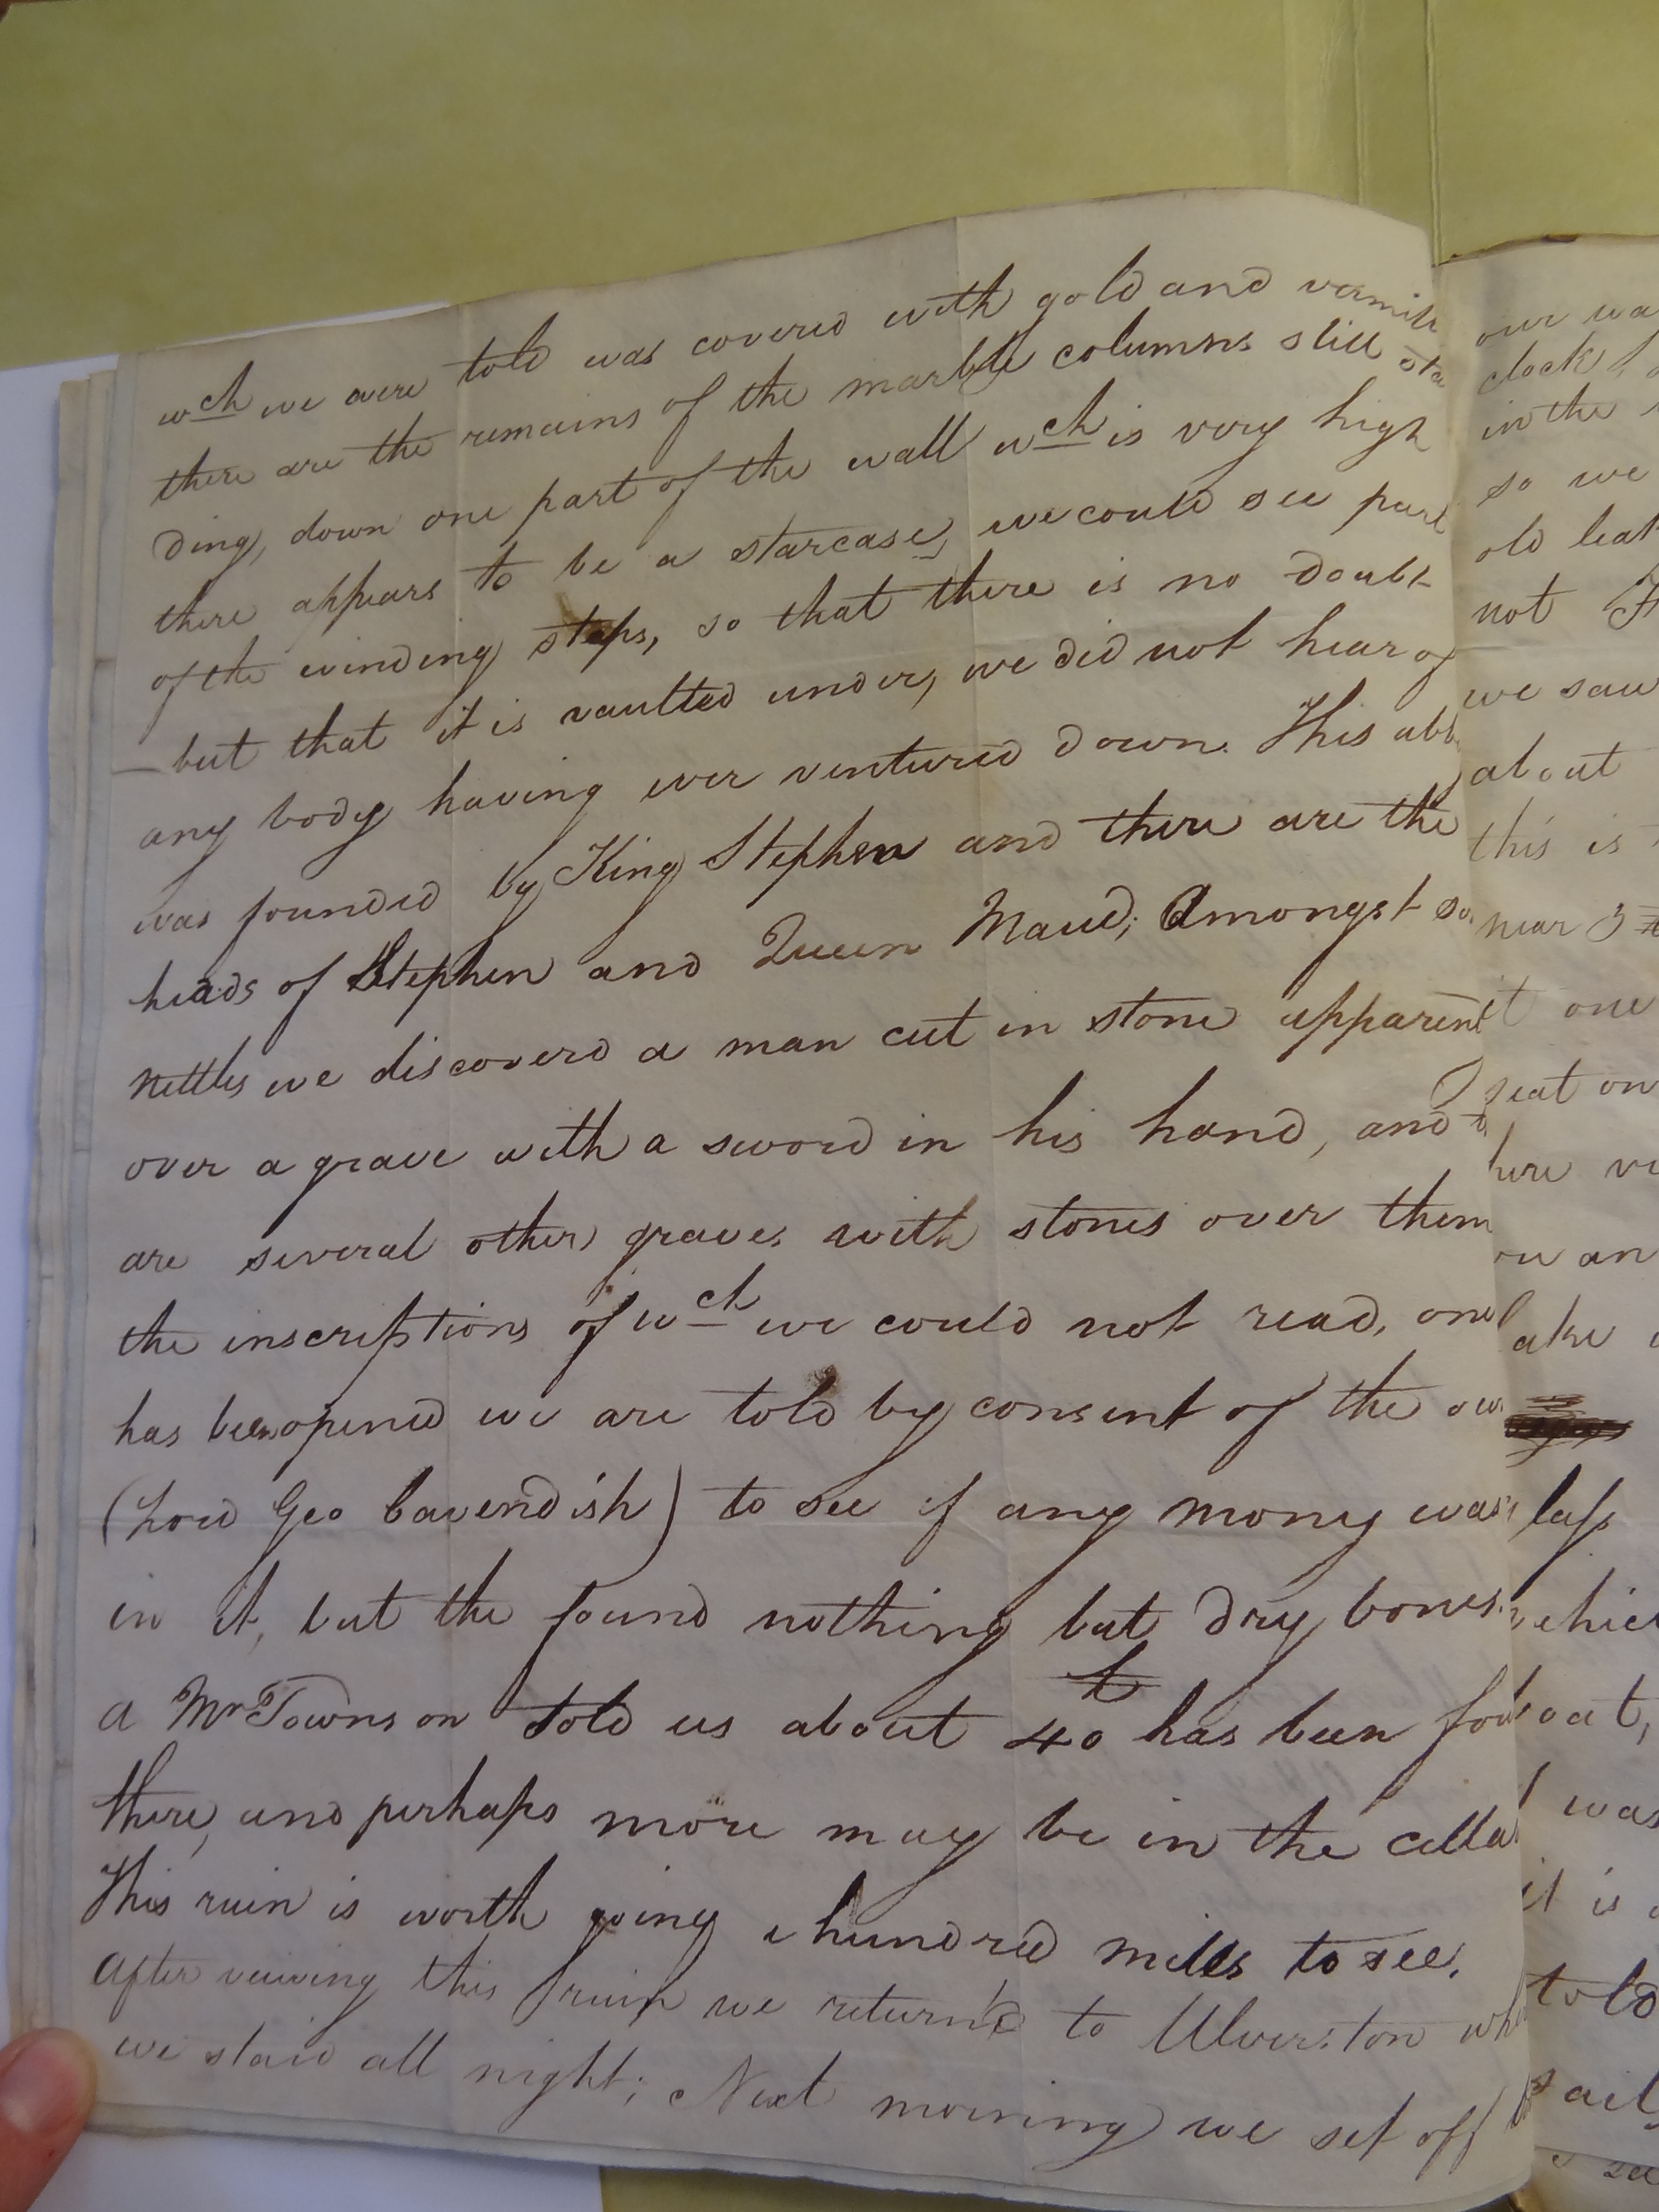 wch we were told was covered with gold and vermili
there are the remains of the marble columns still sta
ding, down one part of the wall wch is very high
there appears to be a starcase, we could see part
of the winding steps, so that there is no doubt
but that it is vaulted under, we did not hear of
any body having ever ventured down. This abb
was founded by King Stephen and there are the
heads of Stephen and Queen Maud; Amongst so
nettles we discoverd a man cut in stone apparent
over a grave with a sword in his hand, and
are several other graves with stones over them
the inscriptions of wch we could not read, one
has been opened we are told by consent of the ow
(Lord Geo Cavendish) to see if any mony was
in it, but the found nothing but dry bones.
a Mr Townson told us about 40 has been fou
there, and perhaps more may be in the cella
This ruin is worth going a hundred miles to see.
After veiwing this ruin we return'd to Ulverston whe
we staid all night; Next morning we set off
our wa
clock
in the
so we
old leat
not
we saw
about
this is
near 3
it one
seat on
here
an
ake
less
whic
boat,
was
it is
told
sail